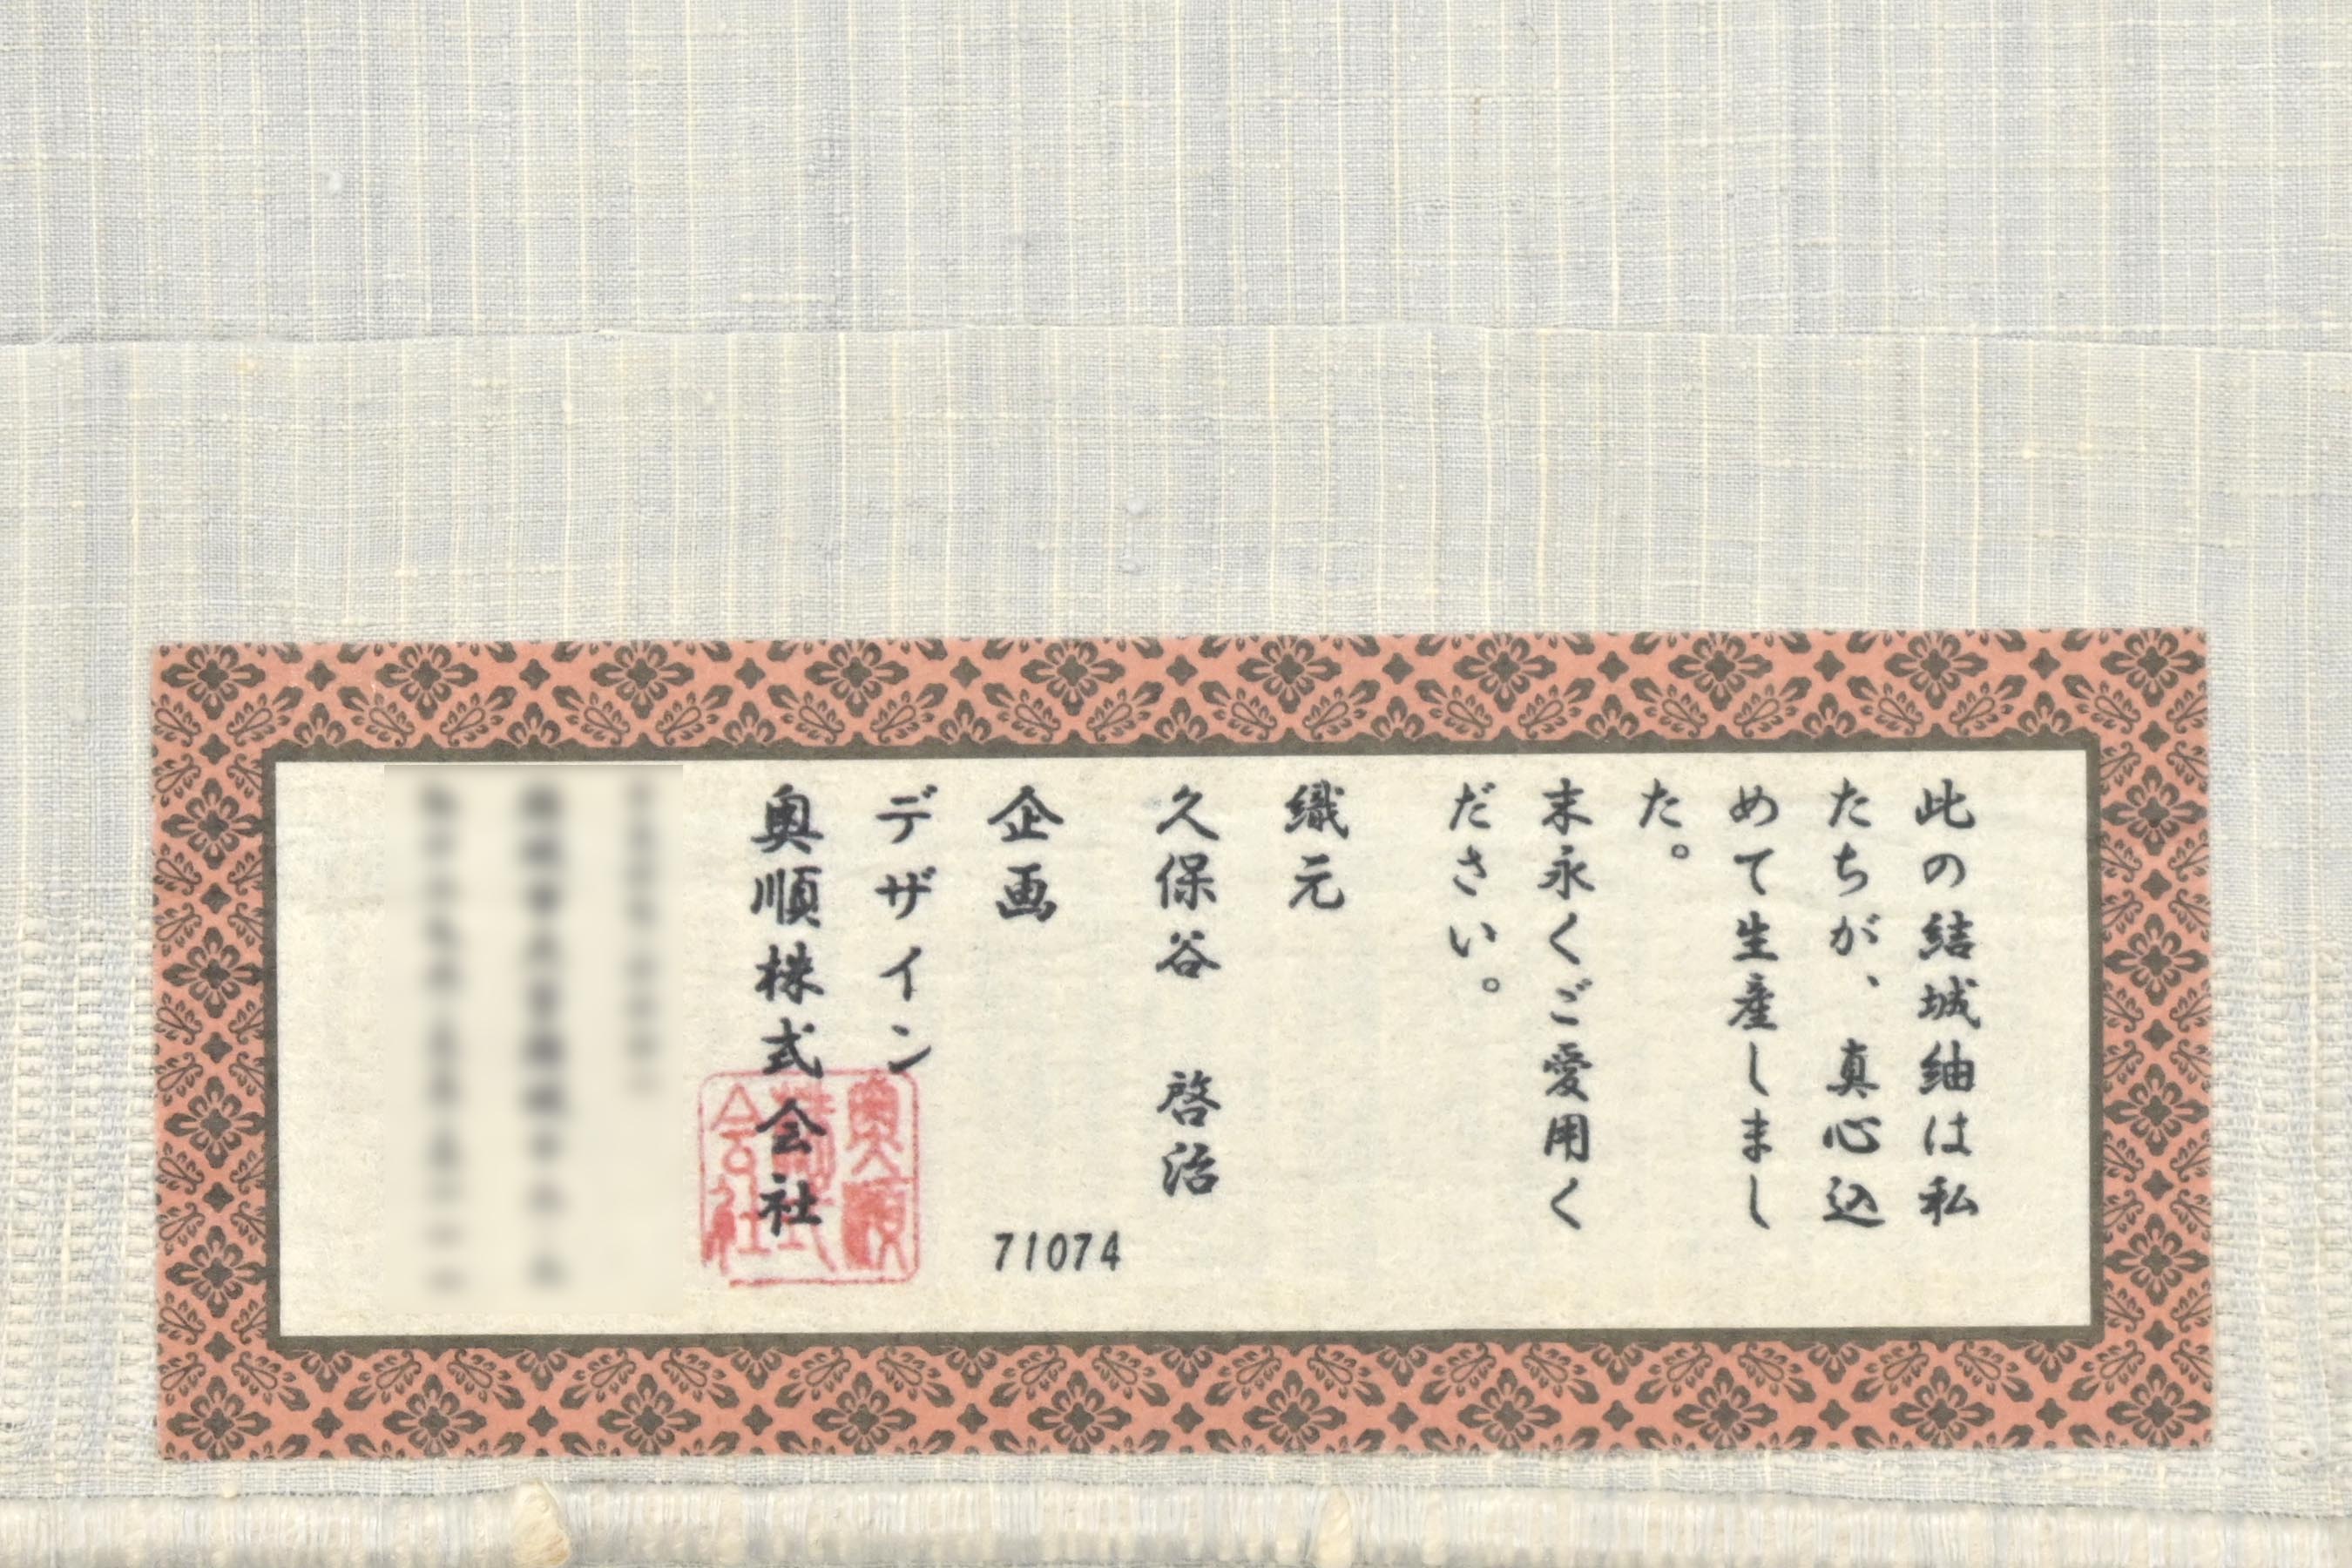 此の結城紬は私
たちが、真心込
めて生産しまし
た。
末永くご愛用く
ださい。
織元
久保谷 啓治
企画
デザイン
奥順株式会社
71074
奥順
株式
会社